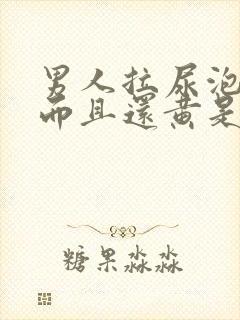 男人拉尿泡
而且還黃是
糖果淼淼